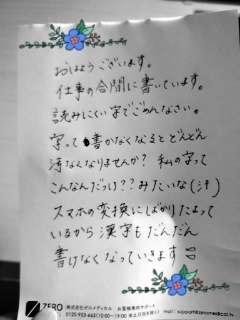 おはようございます。
仕事の合間に書いています。
読みにくい字でごめんなさい。
字って書かなくなるとどんどん
汚なくなりませんか？私の字って
こんなんだっけ？？みたいな(汗)
スマホの変換にばかりたよって
いるから漢字もだんだん
書けなくなっていきます
ZERO
株式会社ゼロメディカル お客様専用サポート
0120-953-660(10:00〜19:00 ※土日祝を除く) mail: support@zeromedical.tv